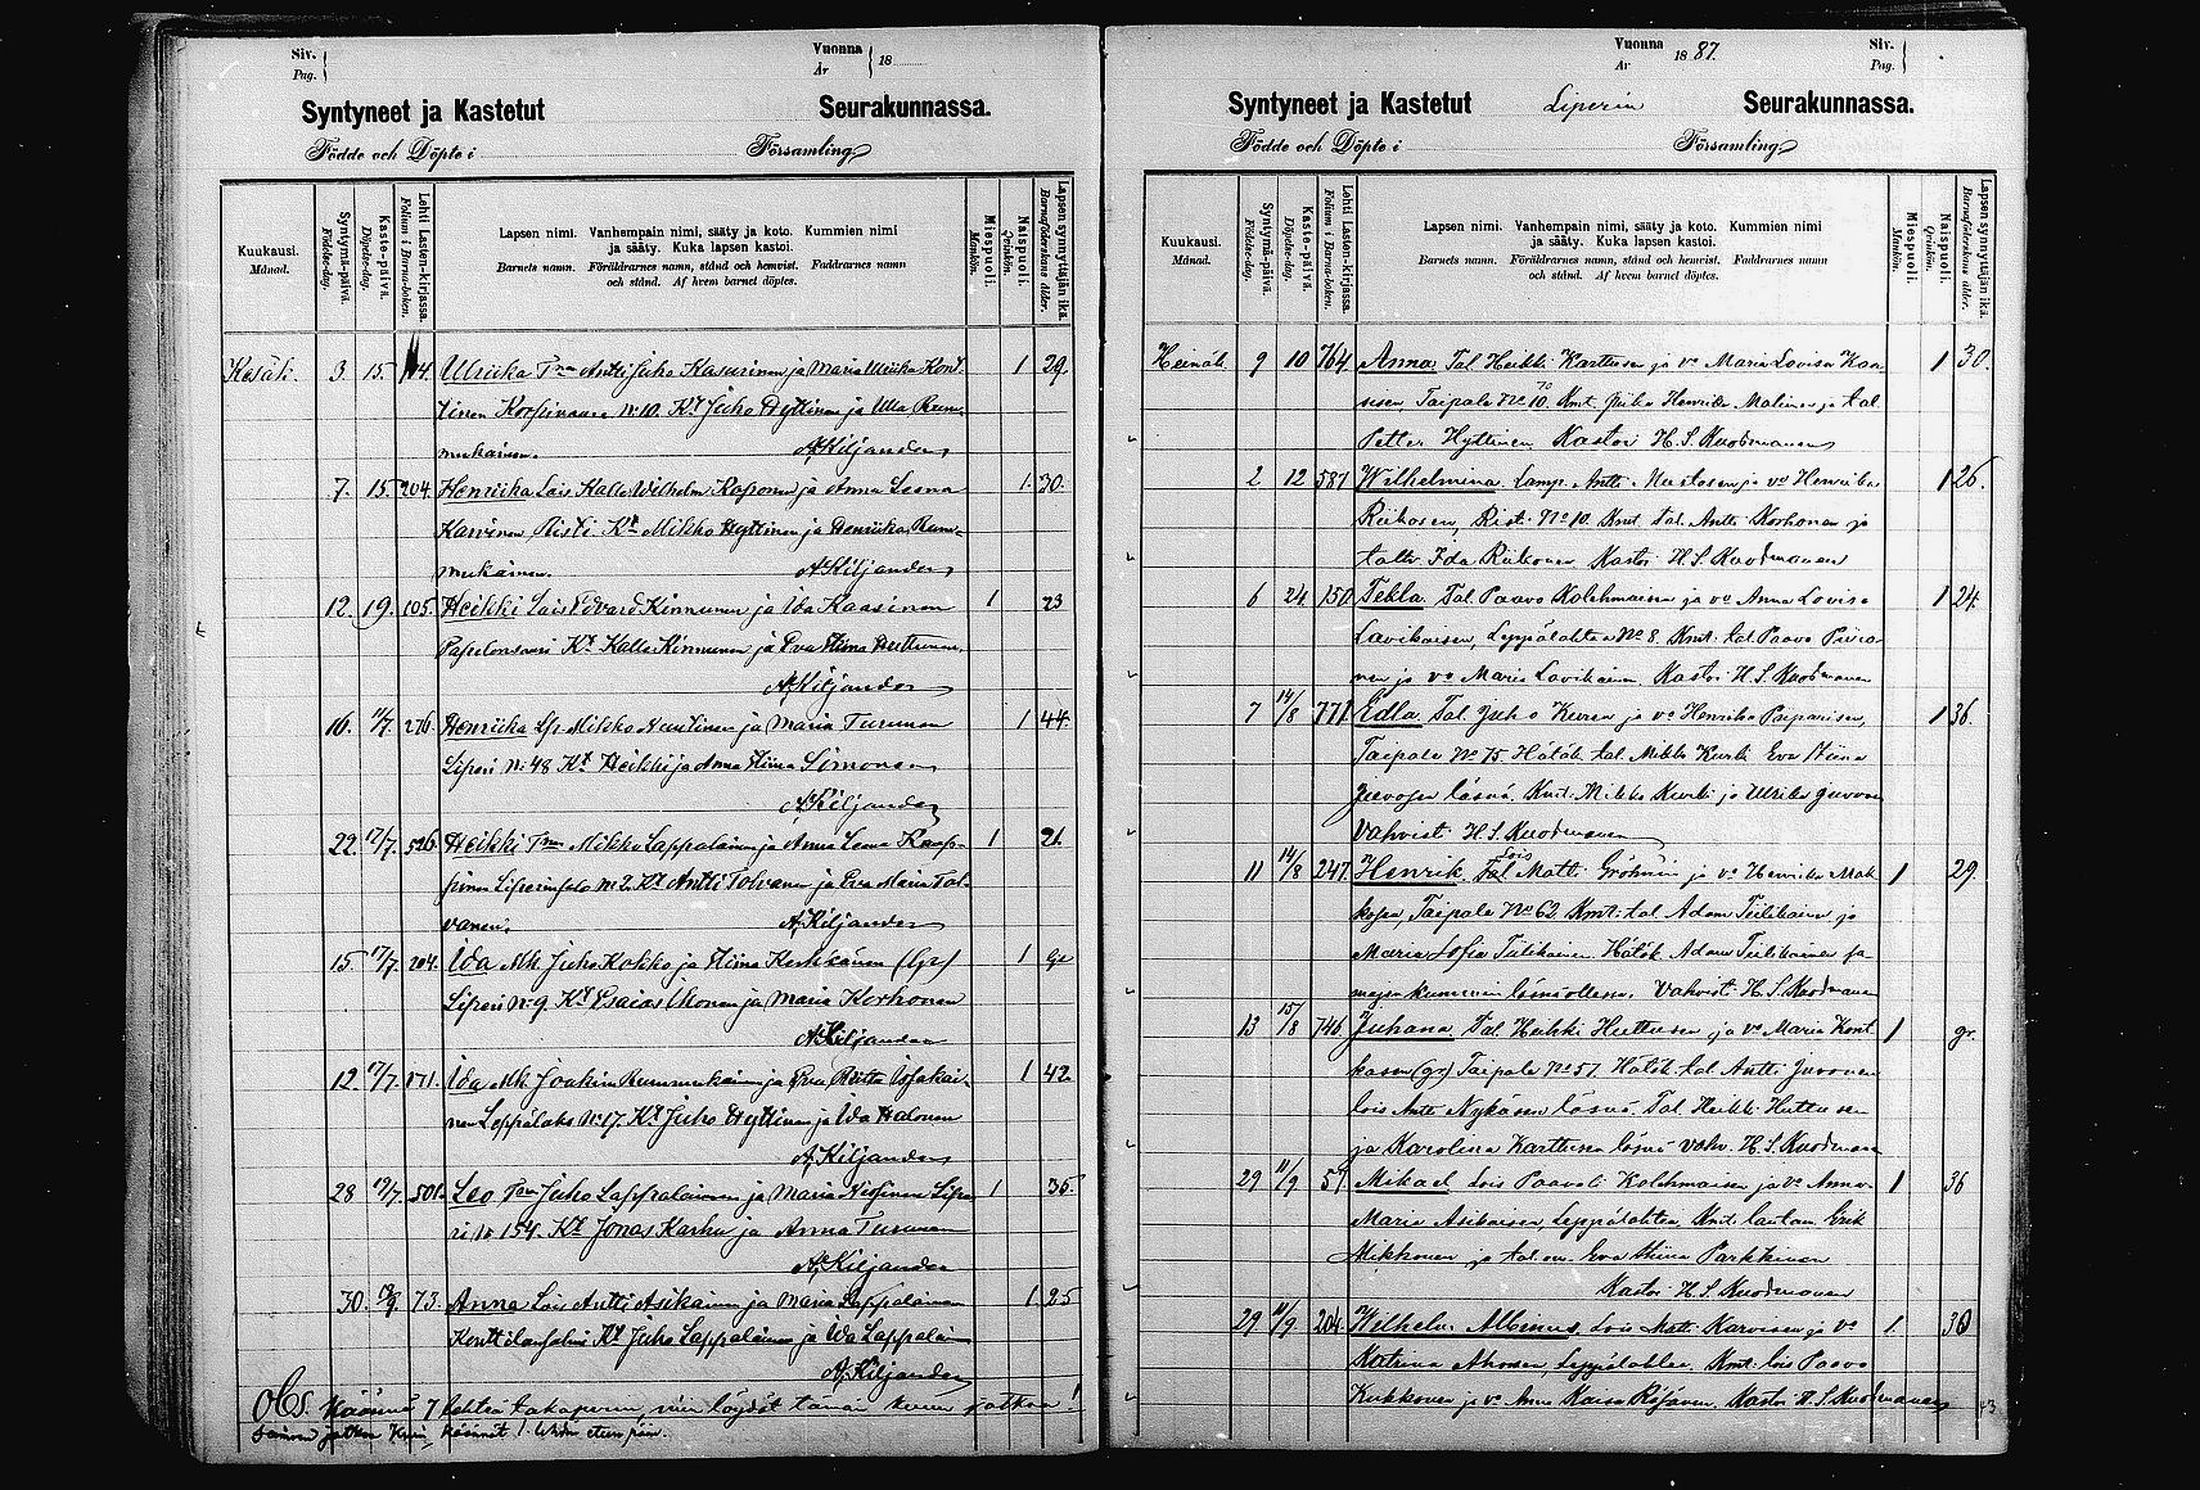 Siv.
Pag.
Vuonna
År
18
Syntyneet ja Kastetut Seurakunnassa.
Födde och Döpte i Församling
Kuukausi.
Månad.
Syntymä-päivä.
Födelse-dag.
Kaste-päivä.
Döpelse-dag.
Lehti Lasten-kirjassa.
Folium i Barna-boken.
Lapsen nimi. Vanhempain nimi, sääty ja koto. Kummien nimi
ja sääty. Kuka lapsen kastoi.
Barnets namn. Föräldrarnes namn, stånd och hemvist. Faddrarnes namn
och stånd. Af hvem barnet döptes.
Miespuoli.
Mankön.
Naispuoli.
Qvinkön.
Lapsen synnyttäjän ikä.
Barnaföderskans ålder.
Kesäk. 3. 15. Ulriika Antti Juho Kasurinen ja Maria Ulriika Kont- 1 29.
tinen No 10. Kt Juho Hyttinen ja Ulla Rum-
mukainen. A. Kiljander
7. 15. 204. Henriika Lois Kalle Wilhelm Kaponen ja Anna Leena 1 30.
Karvinen Risti Kt Mikko Hyttinen ja Henriika Rum-
mukainen. A. Kiljander
12. 19. 105. Heikki Lois Edvard Kinnunen ja Ida Kaasinen 1 23
Kt Kalle Kinnunen ja Eva Stina Huttunen.
A. Kiljander
16. 11/7. 276. Henriika Mikko ja Maria Turunen 1 44.
Liperi No 48 Kt Heikki ja Anna Stina Simonen
A. Kiljander
22. 17/7. 526. Heikki Mikko Lappalainen ja Anna Leena 1 21.
No 2. Kt Antti Tolvanen ja Eva Maria Tol-
vanen. A. Kiljander
15. 17/7. 204. Ida Mk. Juho Kokko ja Stina (gr) 1 gr
Liperi No 9 Kt Esaias Ikonen ja Maria Korhonen
A. Kiljander
12. 17/7. 171. Ida Mk. Joakim Rummukainen ja Eva Riitta 1 42
nen Leppälaks No 17. Kt Juho Hyttinen ja Ida Halonen
A. Kiljander
28 19/7. 501. Leo Juho Lappalainen ja Maria Lipe- 1 35.
ri No 154. Kt Jonas Karhu ja Anna Turunen
A. Kiljander
30. 73. Anna Lois Antti Asikainen ja Maria Lappalainen 1 25
Kt Juho Lappalainen ja Ida Lappalai
A. Kiljander
Obs. Käännä 7 lehteä takaperin, niin löydät tämän kuun jatkoa!
Vuonna
År
1887.
Siv.
Pag.
Syntyneet ja Kastetut Liperin Seurakunnassa.
Födde och Döpte i Församling
Kuukausi.
Månad.
Syntymä-päivä.
Födelse-dag.
Kaste-päivä.
Döpelse-dag.
Lehti Lasten-kirjassa.
Folium i Barna-boken.
Lapsen nimi. Vanhempain nimi, sääty ja koto. Kummien nimi
ja sääty. Kuka lapsen kastoi.
Barnets namn. Föräldrarnes namn, stånd och hemvist. Faddrarnes namn
och stånd. Af hvem barnet döptes.
Miespuoli.
Mankön.
Naispuoli.
Qvinkön.
Lapsen synnyttäjän ikä.
Barnaföderskans ålder.
Heinäk. 9 10 764. Anna. Tal. Heikki Karttusen ja vo Maria Lovisa Kaa- 1 30.
sisen, Taipale No 10. Kmt. Henrika Malinen ja tal.
Petter Hyttinen Kastoi H. S. Kuosmanen
2 12 587 Wilhelmina. Lamp. Antti Mustosen ja vo Henrika 1 26.
Riikosen, Risti No 10. Kmt. tal. Antti Korhonen ja
taltr Ida Riikonen Kastoi H. S. Kuosmanen
6 24. 150. Tekla. Tal. Paavo Kolehmaisen ja vo Anna Lovisa 1 24.
Lavikaisen, Leppälahtea No 8. Kmt. tal. Paavo Piiro-
nen ja vo Maria Lavikainen. Kastoi H. S. Kuosmanen
7 14/8 771. Edla. Tal. Juho Kuren ja vo Henrika Paparisen, 1 36.
Taipale No 75. Hätäk. tal. Mikko Kurki Eva Stina
Juvosen läsnä. Kmt. Mikko Kurki ja Ulrika Juvonen
Vahvisti H. S. Kuosmanen
Lois
11 14/8 247. Henrik. Tal Matti Gröhnin ja vo Henrika Mak- 1 29.
kosen, Taipale No 62. Kmt. tal. Adam Tiilikainen ja
Maria Sofia Tiilikainen. Hätäk. Adam Tiilikainen sa-
majen kummien läsnäollessa. Vahvisti H. S. Kuosmanen
13 15/8 746. Juhana. Tal. Heikki Huttusen ja vo Maria Kont- 1 gr.
kasen (gr) Taipale No 57. Hätäk. tal. Antti Juvonen
lois Antti Nykäsen läsnä. Tal. Heikki Huttusen
ja Karolina Karttusen läsnä vahv. H. S. Kuosmanen
29 11/9 57. Mikael. Lois Paavali Kolehmaisen ja vo Anna 1 36
Maria Asikaisen Leppälahtea. Kmt. lautam. Erik
Mikkonen ja tal. em. Eva Stina Parkkinen
Kastoi H. S. Kuosmanen
29 11/9 204. Wilhelm Albinus. Lois Matti Karvisen ja vo 1. 30
Katrina Ahosen, Leppälahtea. Kmt. lois Paavo
Kukkonen ja vo Anna Kaisa Räsänen. Kastoi H. S. Kuosmanen